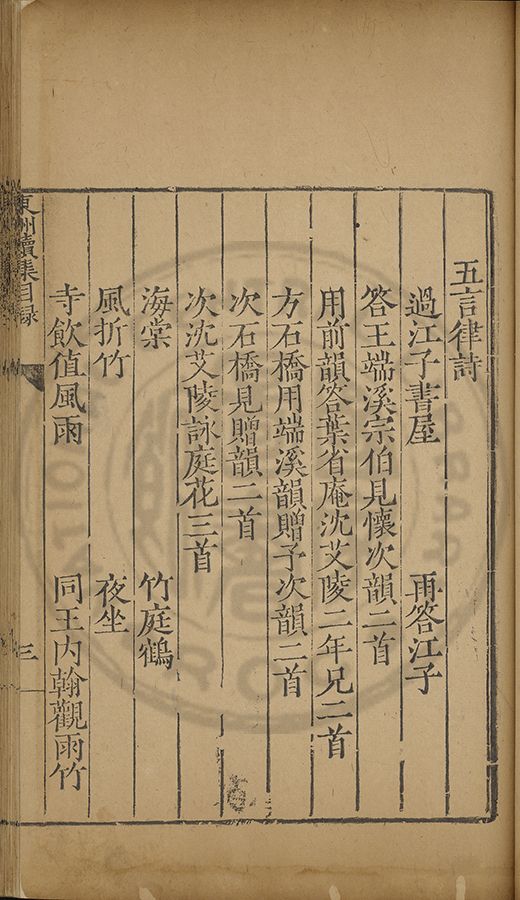 五言律詩
過江子書屋　再答江子
答王端溪宗伯見懷次韻二首
用前韻答葉省庵沈艾陵二年兄二首
方石橋用端溪韻贈予次韻二首
次石橋見贈韻二首
次沈艾陵詠庭花三首
海棠　竹庭鶴
風折竹　夜坐
寺飲值風雨　同王內翰觀雨竹
東洲續集目錄
三